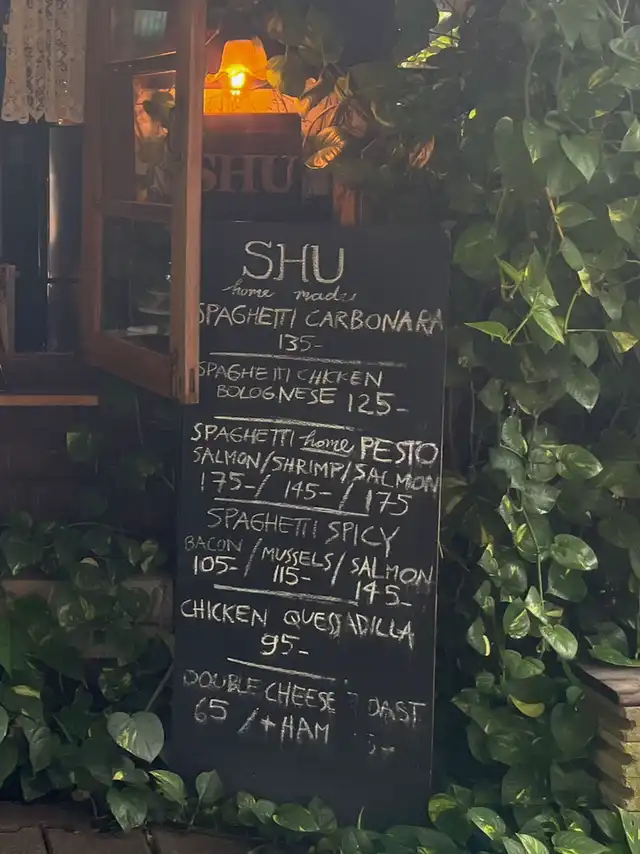 SHU
SHU
home made
SPAGHETTI CARBONARA
135-
SPAGHETTI CHICKEN
BOLOGNESE 125-
SPAGHETTI home PESTO
SALMON/SHRIMP/SALMON
175-/ 145-/ 175
SPAGHETTI SPICY
BACON / MUSSELS / SALMON
105- 115- 145-
CHICKEN QUESSADILLA
95-
DOUBLE CHEESE
65 /+HAM